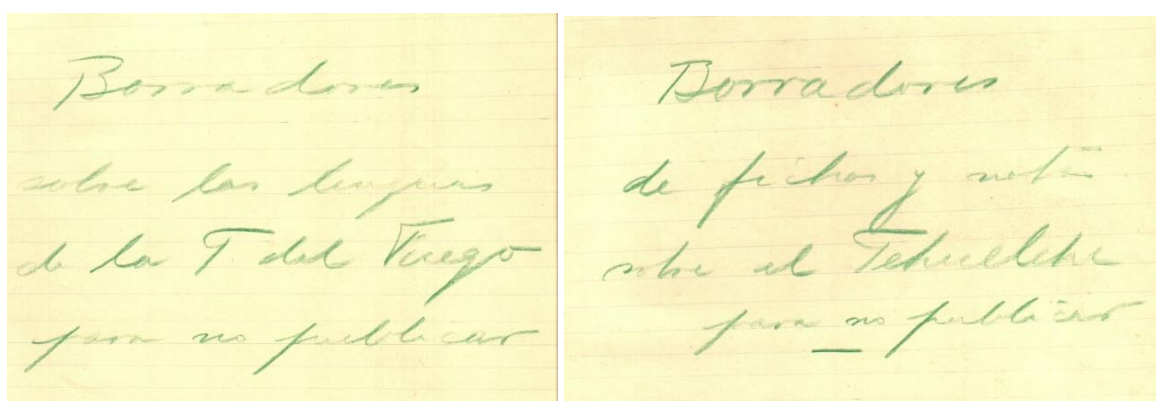 Borradores
sobre las lenguas
de la T. del Fuego
para no publicar
Borradores
de fichas y notas
sobre el Tehuelche
para no publicar